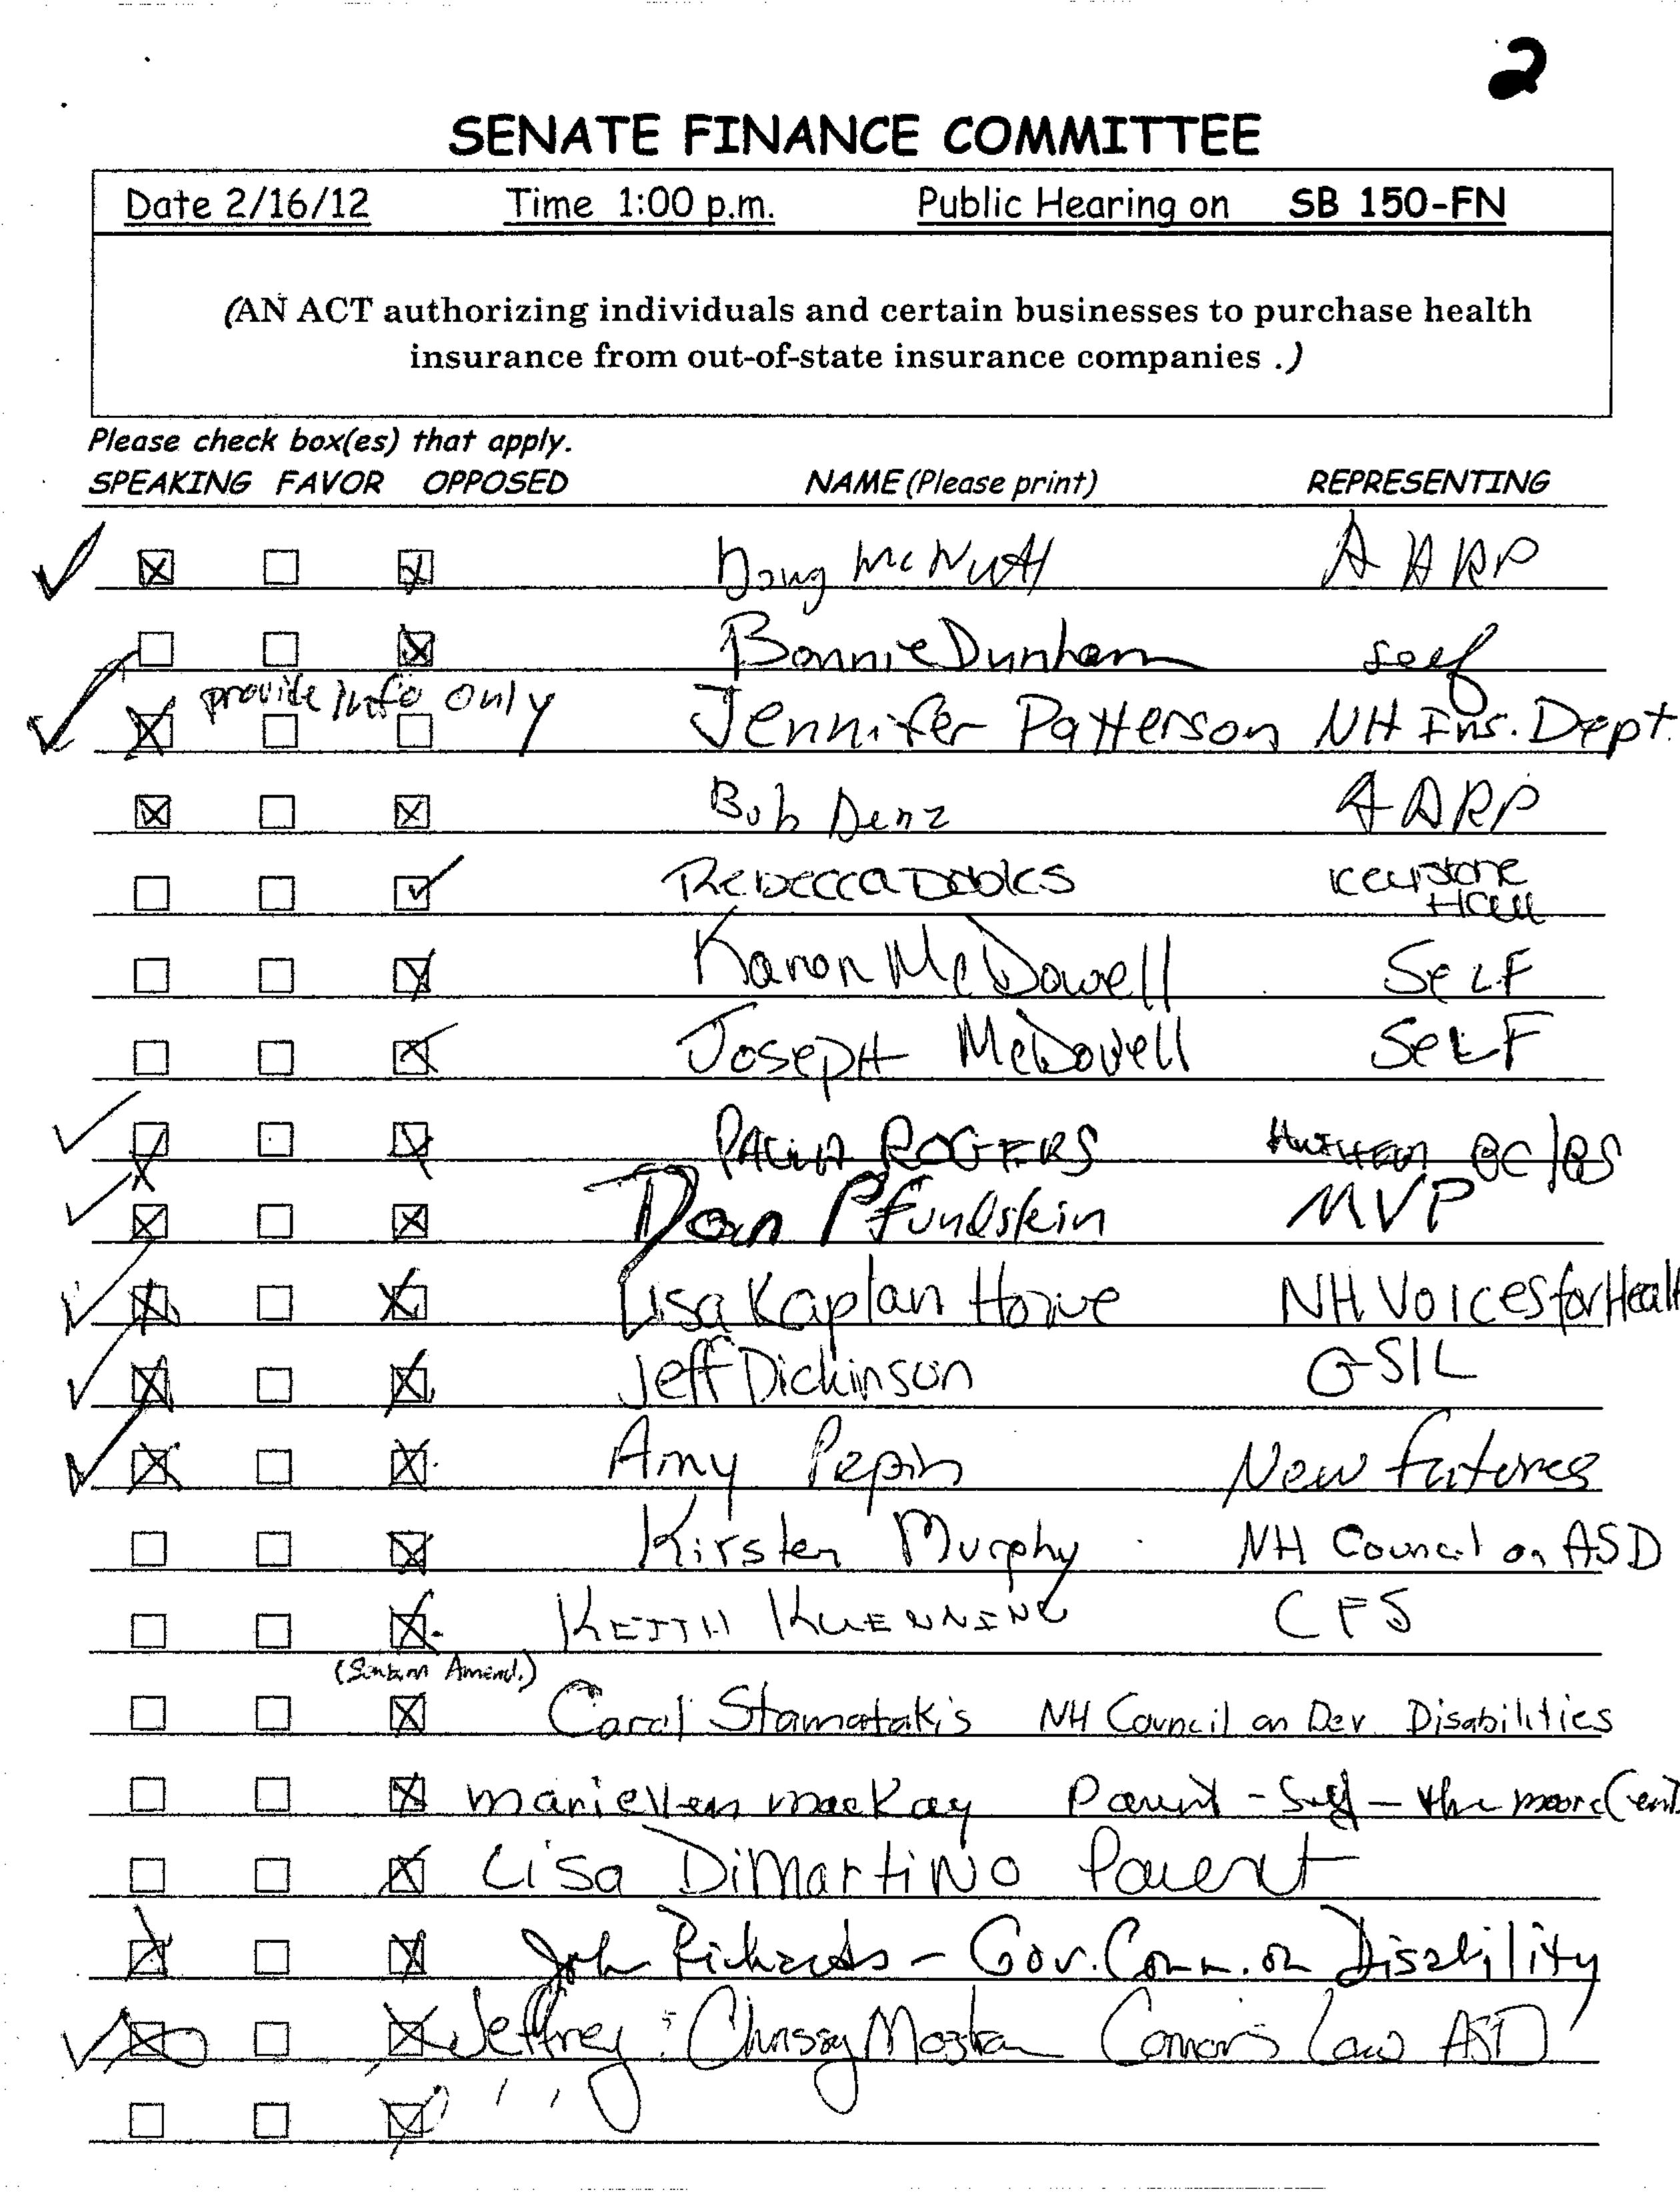 2
SENATE FINANCE COMMITTEE
Date 2/16/12 Time 1:00 p.m. Public Hearing on SB 150-FN
(AN ACT authorizing individuals and certain businesses to purchase health
insurance from out-of-state insurance companies .)
Please check box(es) that apply.
SPEAKING FAVOR OPPOSED NAME (Please print) REPRESENTING
Doug McNutt AARP
Bonnie Dunham self
provide info only
Jennifer Patterson NH Ins. Dept.
Bob Denz AARP
Rebecca Dobles Keystone
Hall
Karon McDowell SeLF
JosepH McDowell SeLF
PAULA ROGERS BC/BS
Dan Pfundstein MVP
Lisa Kaplan Howe NH Voices for Healt
Jeff Dickinson GSIL
Amy Pepin New Futures
Kirsten Murphy NH Council on ASD
KEITH KUENNING CFS
Amend.)
Carol Stamatakis NH Council on Dev. Disabilities
mariellen mackay Parent - Self - the moore Cent
Lisa DiMartiNo Parent
John Richards - Gov. Comm. on Disability
Jeffrey Chrissy Connor's Law ASD